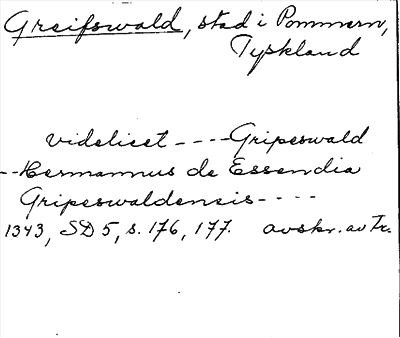 Greifswald, stad i Pommern,
Tyskland
videlicet - - - - Gripeswald
- - Hermannus de Essendia
Gripeswaldensis - - - -
1343, SD 5, s. 176, 177. avskr. av Tr.